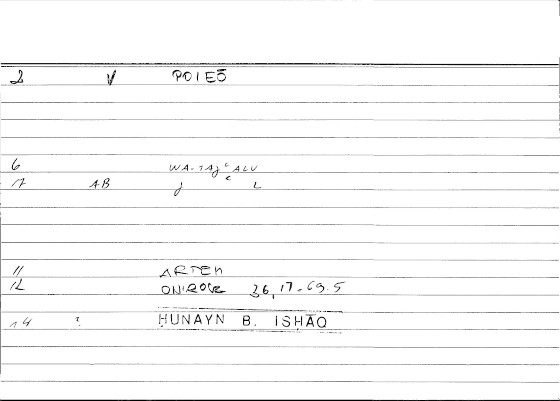 2 V POIEŌ
6 WA-TAJʿALU
7 AB J ʿ L
11 ARTEM
12 ONIROCR 36,17-69.5
14 ? ḤUNAYN B. ISḤĀQ